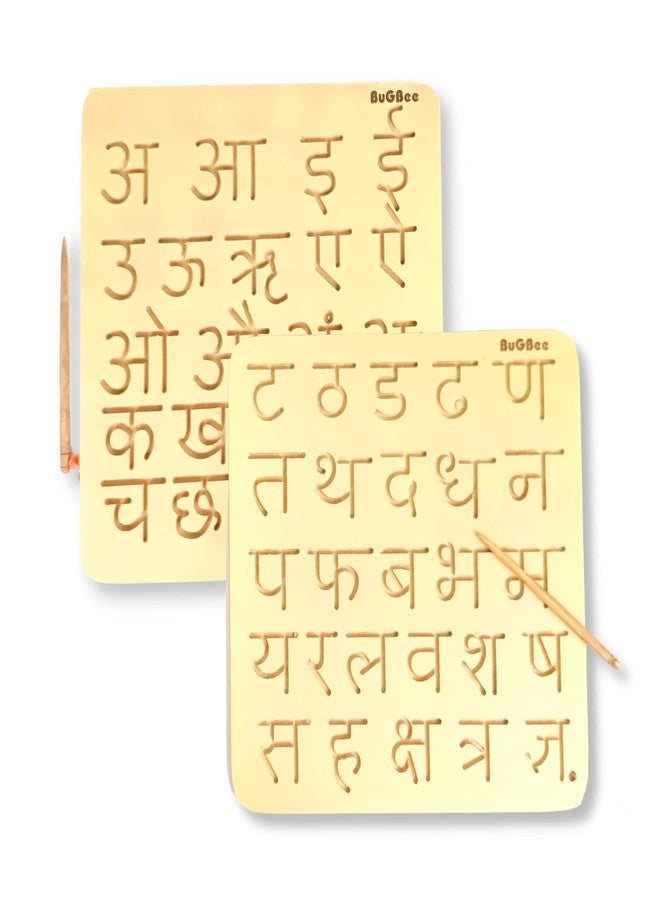 BuGBee
अ आ इ ई
उ ऊ ऋ ए ऐ
ओ औ अं
क ख
च छ
BuGBee
ट ठ ड ढ ण
त थ द ध न
प फ ब भ म
य र ल व श ष
स ह क्ष त्र ज्ञ.